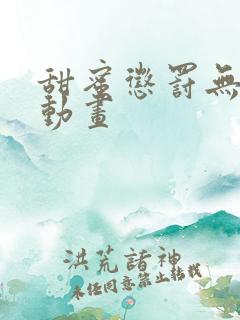 甜蜜懲罰無
動畫
洪荒諸神
未經同意禁止轉載